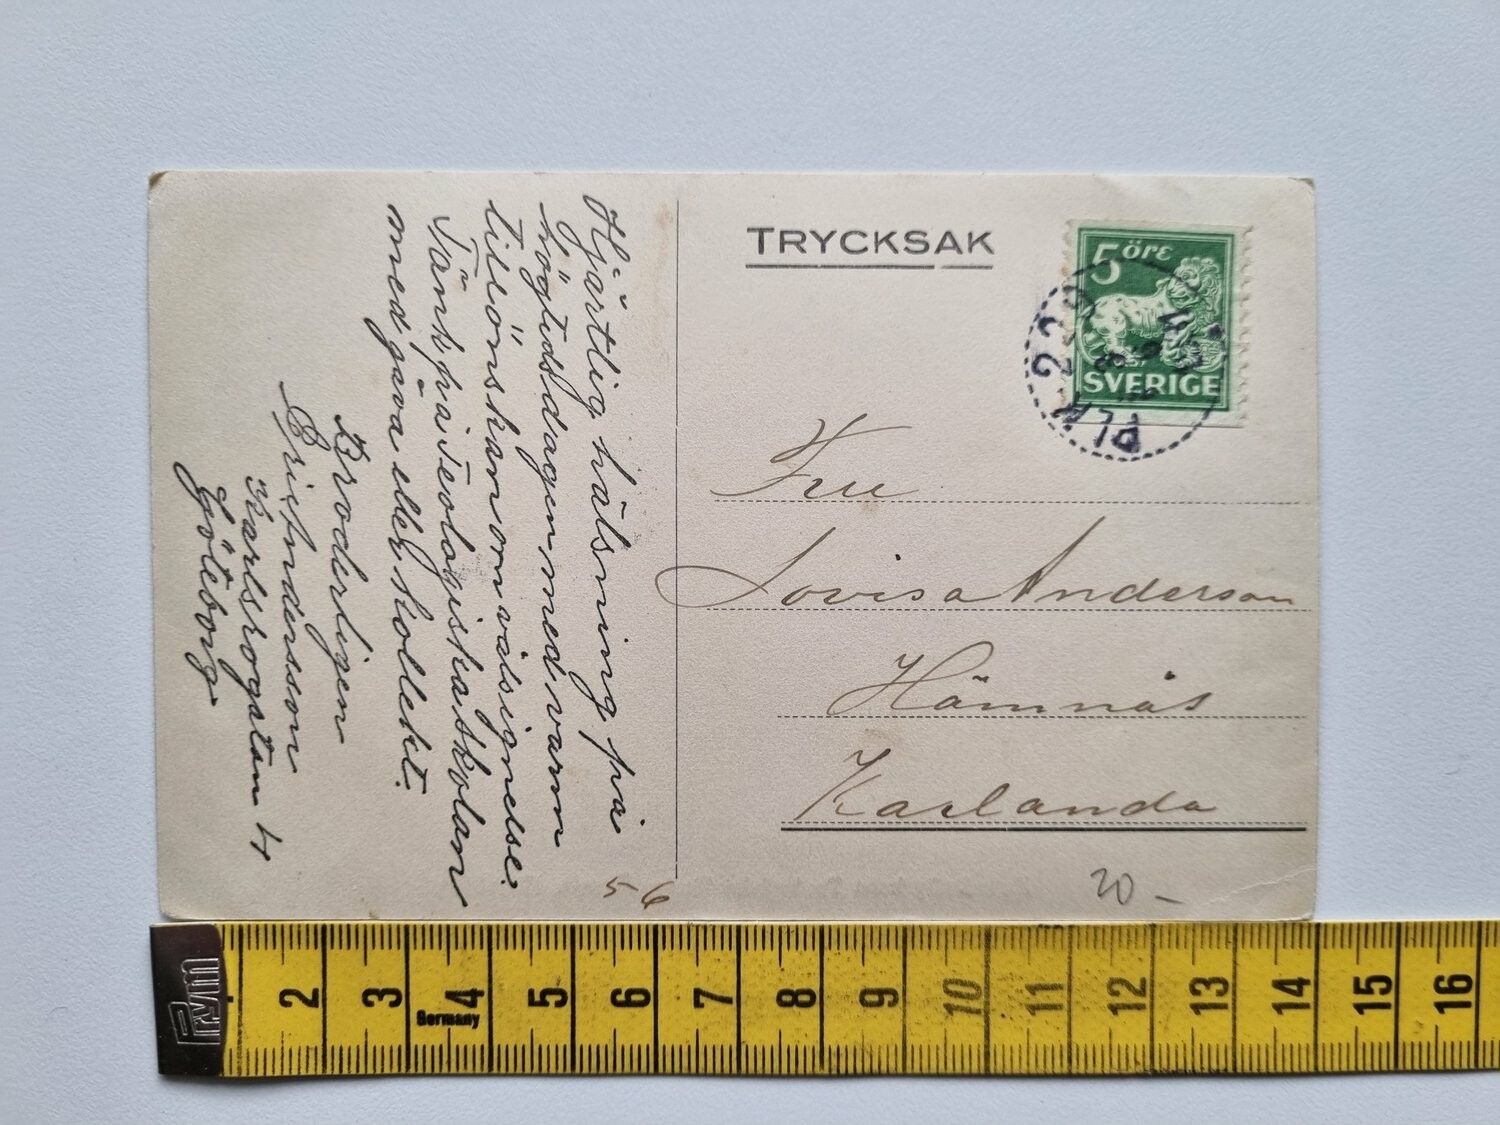 TRYCKSAK
5 öre
SVERIGE
PLK 229
Hjärtlig hälsning på
högtidsdagen med varm
tillönskan om välsignelse.
Tänk på Teologiska skolan
med gåva eller kollekt.
Broderligen
Eric Andersson
Karlsrogatan 4
Göteborg
Fru
Lovisa Anderson
Hämnäs
Karlanda
56
20-
Prym
2 3 4 5 6 7 8 9 10 11 12 13 14 15 16
Germany